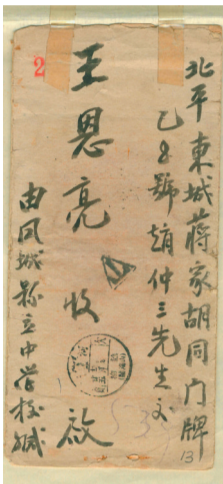 北平東城蔣家胡同门牌
乙8號趙仲三先生交
王恩亮 收 啟
由凤城縣立中学校缄
2
13